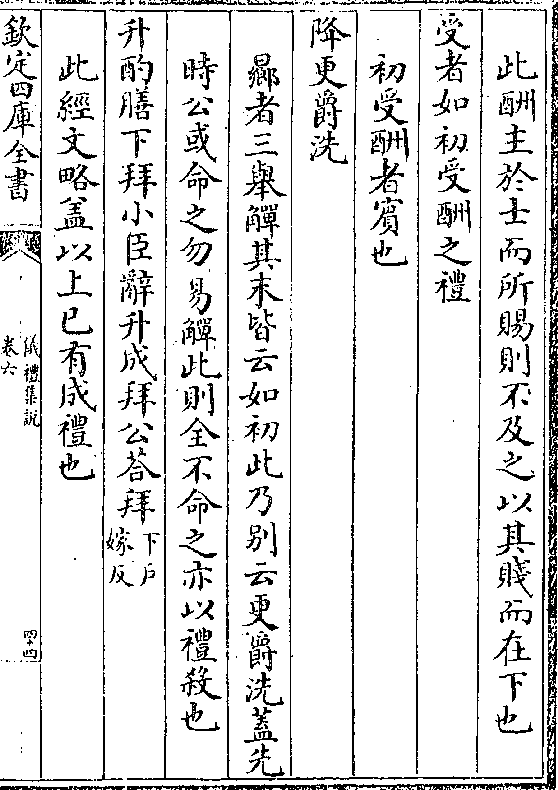 此酬主於士而所賜則不及之以其賤而在下也
受者如初受酬之禮
初受酬者賓也
降更爵洗
曏者三舉觶其末皆云如初此乃別云更爵洗蓋先
時公或命之勿易觶此則全不命之亦以禮殺也
升酌膳下拜小臣辭升成拜公荅拜下戶嫁反
此經文略蓋以上已有成禮也
欽定四庫全書
儀禮集說
卷六
四十四